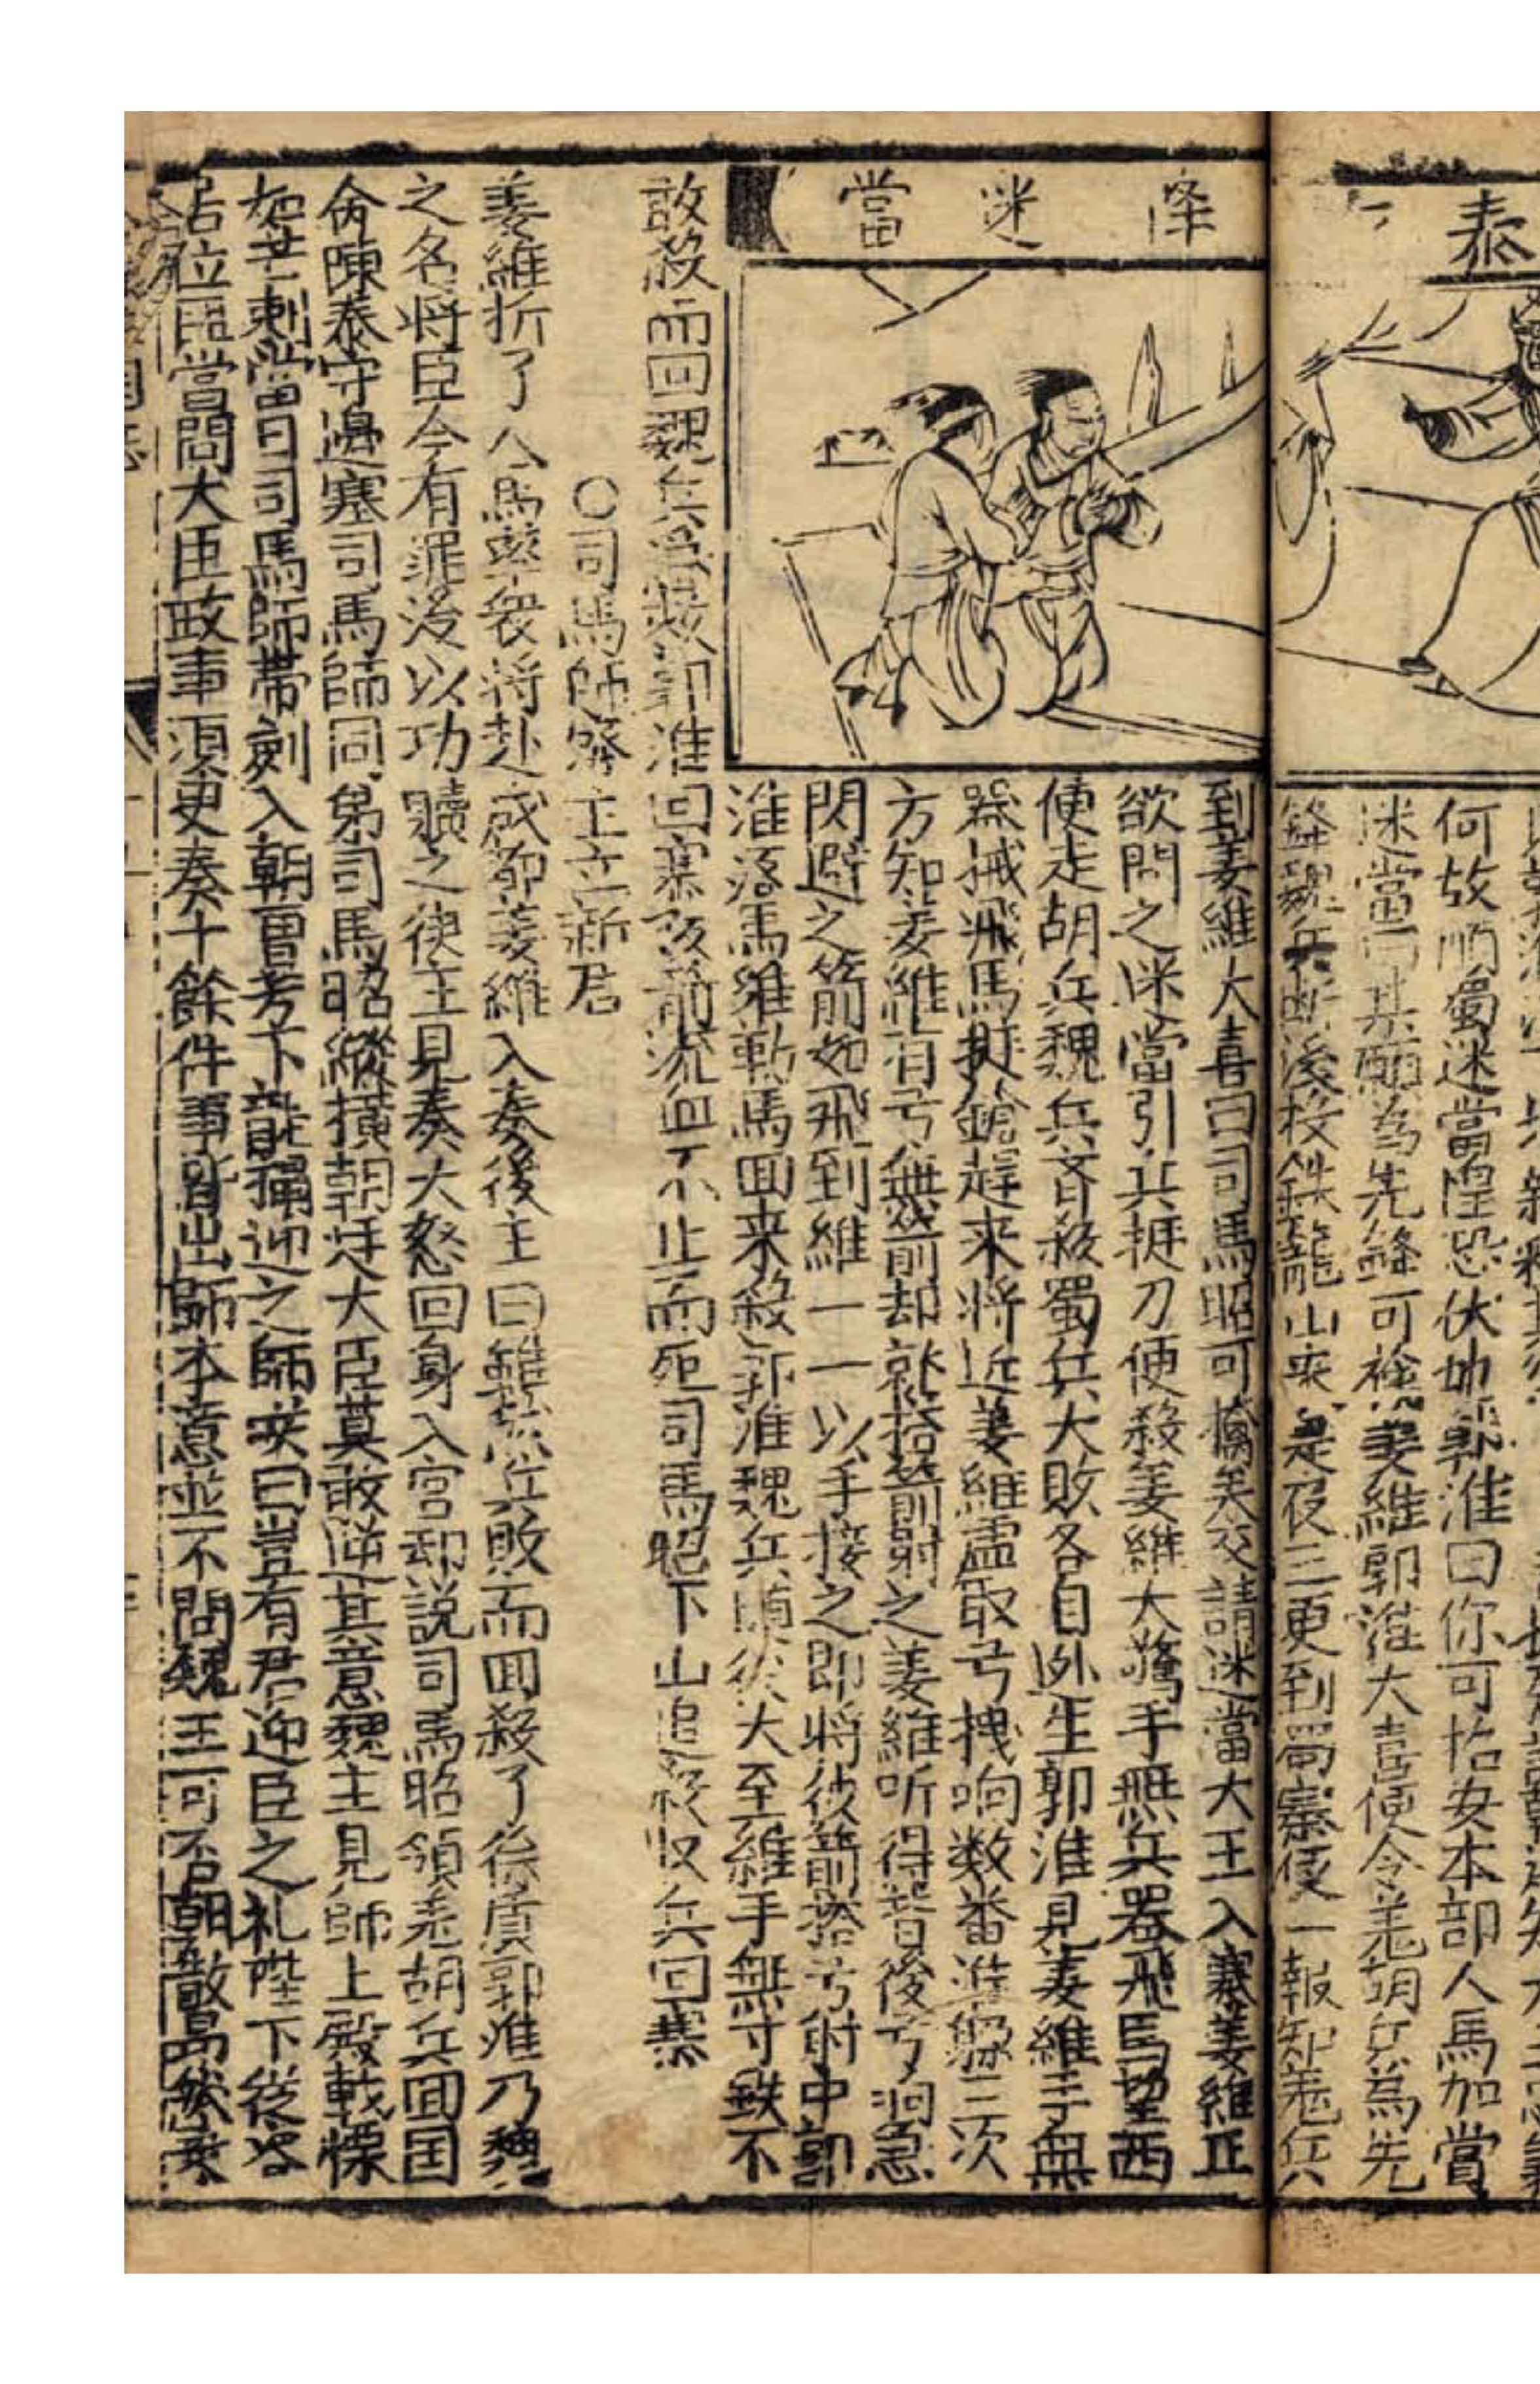 泰
何故順蜀迷當惶恐伏地郭淮曰你可招安本部人馬加賞
迷當曰某願為先鋒可襝姜維郭淮大喜便令羌胡兵為先
鋒魏兵断後投鉄籠山來是夜三更到蜀寨使一報知羌兵
降迷當
到姜維大喜曰司馬昭可擒矣交請迷當大王入寨姜維正
欲問之迷當引兵挺刀便殺姜維大驚手無兵器飛馬望西
便走胡兵魏兵齐殺蜀兵大敗各自迯生郭淮見姜維手無
器械飛馬挺鎗赶来将近姜維虛取弓拽响数番淮躱三次
方知姜維有弓無箭却就搭箭射之姜維听得背後弓洞急
閃避之箭如飛到維一一以手接之即將彼箭搭弓射中郭
淮落馬維勒馬回来殺郭淮魏兵隨後大至維手無寸鉄不
敢殺而回魏兵急救郭淮回寨抜箭流血不止而死司馬昭下山追殺收兵回寨
○司馬師癈主立新君
姜維折了人馬與衆将赴成都姜維入奏後主曰雖然兵敗而回殺了徐質郭淮乃魏
之名將臣今有罪後以功贖之後主見奏大怒回身入宫却説司馬昭領羌胡兵回国
令陳泰守邊塞司馬師同弟司馬昭縱横朝廷大臣莫敢逆其意魏主見師上殿戟慄
如芒刺當日司馬師带劍入朝曹芳下龍榻迎之師笑曰豈有君迎臣之礼陛下從容
居位臣當問大臣政事須臾奏十餘件事皆出師本意並不問魏王可否朝散